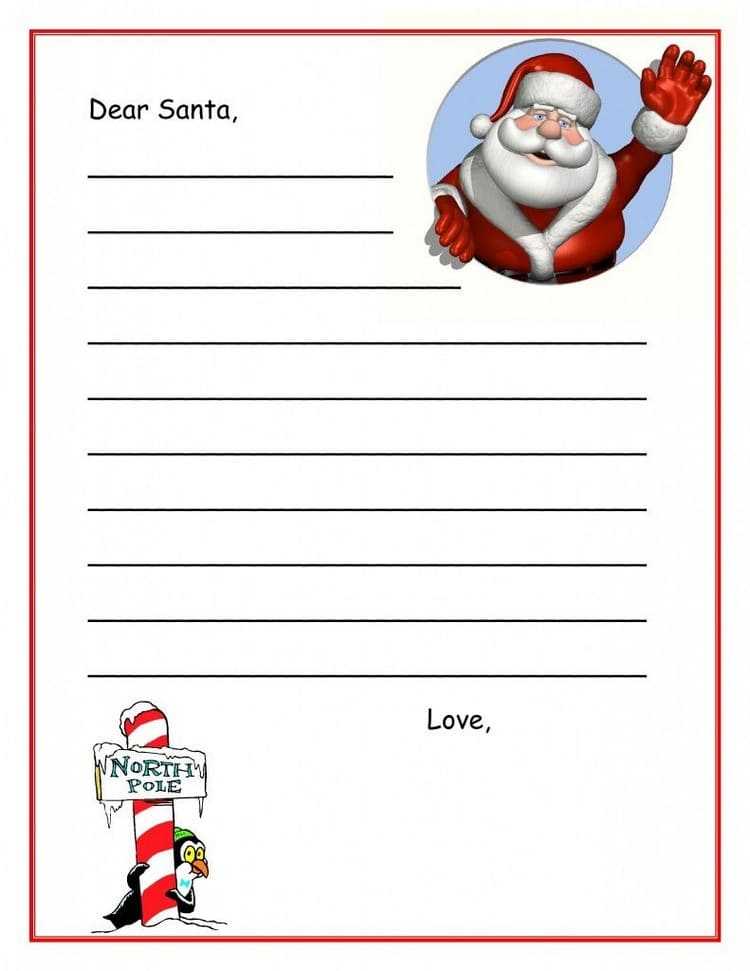 Dear Santa,
Love,
NORTH
POLE